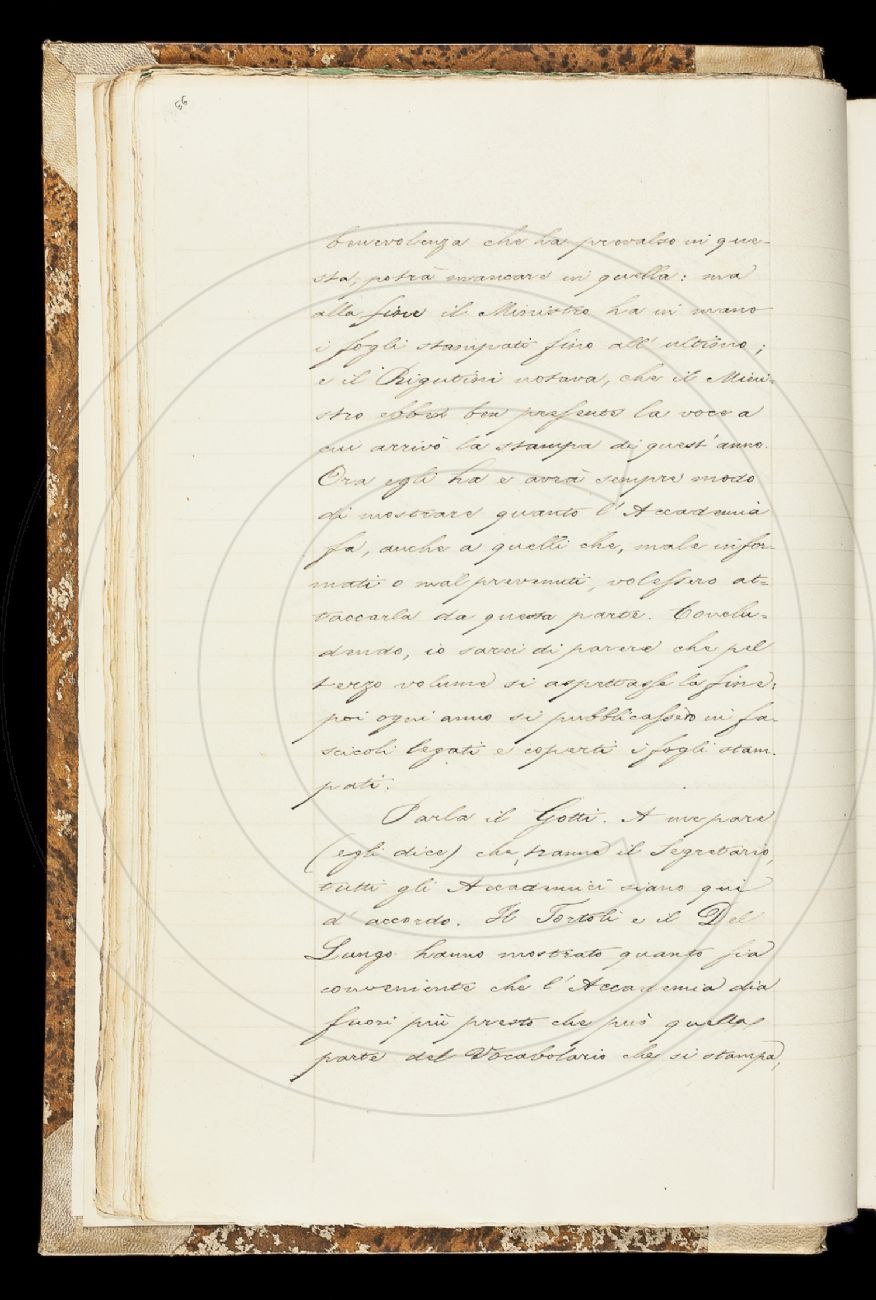 56
benevolenza che ha prevalso in que-
sta, potrà mancare in quella: ma
alla fine il Ministro ha in mano
i fogli stampati fino all' ultimo;
e il Rigutini notava, che il Mini-
stro ebbe ben presente la voce a
cui arrivò la stampa di quest' anno.
Ora egli ha e avrà sempre modo
di mostrare quanto l' Accademia
fa, anche a quelli che, male infor-
mati o mal prevenuti, volessero at-
taccarla da questa parte. Conclu-
dendo, io sarei di parere che pel
terzo volume si aspettasse la fine;
poi ogni anno si pubblicassero in fa-
scicoli legati e coperti i fogli stam-
pati.
Parla il Gotti. A me pare
(egli dice) che, tranne il Segretario,
tutti gli Accademici siano qui
d' accordo. Il Tortoli e il Del
Lungo hanno mostrato quanto sia
conveniente che l' Accademia dia
fuori più presto che può quella
parte del Vocabolario che si stampa,